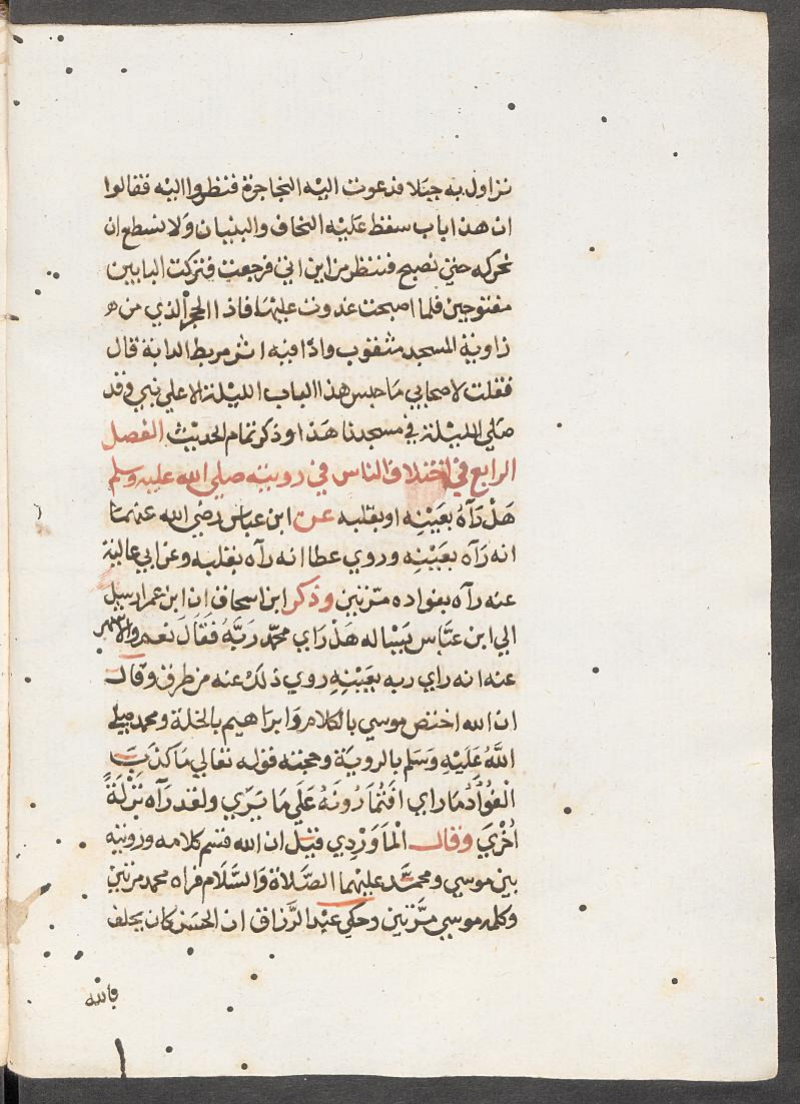 نزاول به جبلا فدعوت اليه النجاجرة فنظروا اليه فقالوا
ان هذا باب سقط عليه النجاف والبنيان ولا نسطع ان
نحركه حتي نصبح فننظر من اين اتي فرجعت فتركت البابين
مفتوحين فلما اصبحت غدوت عليهما فاذا الحجر الذي من
زاوية المسجد مثقوب واذا فيه اثر مربط الدابة قال
فقلت لاصحابي ما حبس هذا الباب الليلة الا علي نبي وقد
صلي الليلة في مسجدنا هذا وذكر تمام الحديث الفصل
الرابع في اختلاف الناس في رويته صلي الله عليه وسلم
هَلْ رَآهُ بعَيْنِه او بقلبه عن ابن عباس رضي الله عنهما
انه رَآه بعَيْنِه وروي عطا انه رآه بقلبه وعن ابي عالية
عنه رآه بفواده مرّتين وذكر ابن اسحاق ان ابن عمر ارسل
الي ابن عبَّاس يَسْاله هَلْ راي محمّد رَبَّهُ فقَالَ نعم والاشهر
عنه انه راي ربه بعَيْنِهِ روي ذلك عنه من طرق وقال
ان الله اختص موسي بالكلام وَابراهيم بالخلة ومحمد صلي
اللَّهُ عَلَيْهِ وَسَلم بالروية وحجته قوله تعالي مَا كذَبَ
الْفُؤَادُ مَا راي افَتُمَارُونَهُ عَلَي مَا يَرَي ولقد رَآه نَزْلَةً
اُخْرَي وقال الْمَاوَرْدِي قيل ان الله قسم كلامه ورويته
بين موسي ومحمَّد عليهما الصَّلاة وَالسَّلام فراه محمد مرتين
وكلمه موسي مرّتين وحكي عبد الرَّزاق ان الحسَن كان يحلف
بالله